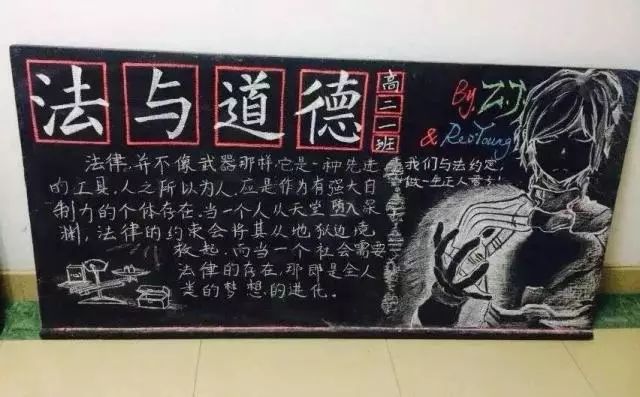 法与道德
高二一班
By Z.J
& RedYoung
法律,并不像武器那样,它是一种先进
的工具,人之所以为人,应是作为有强大自
制力的个体存在,当一个人从天堂堕入深
渊,法律的约束会将其从地狱边境
救起,而当一个社会需要
法律的存在,那即是全人
类的梦想的进化。
我们与法约定,
做一生正人君子!